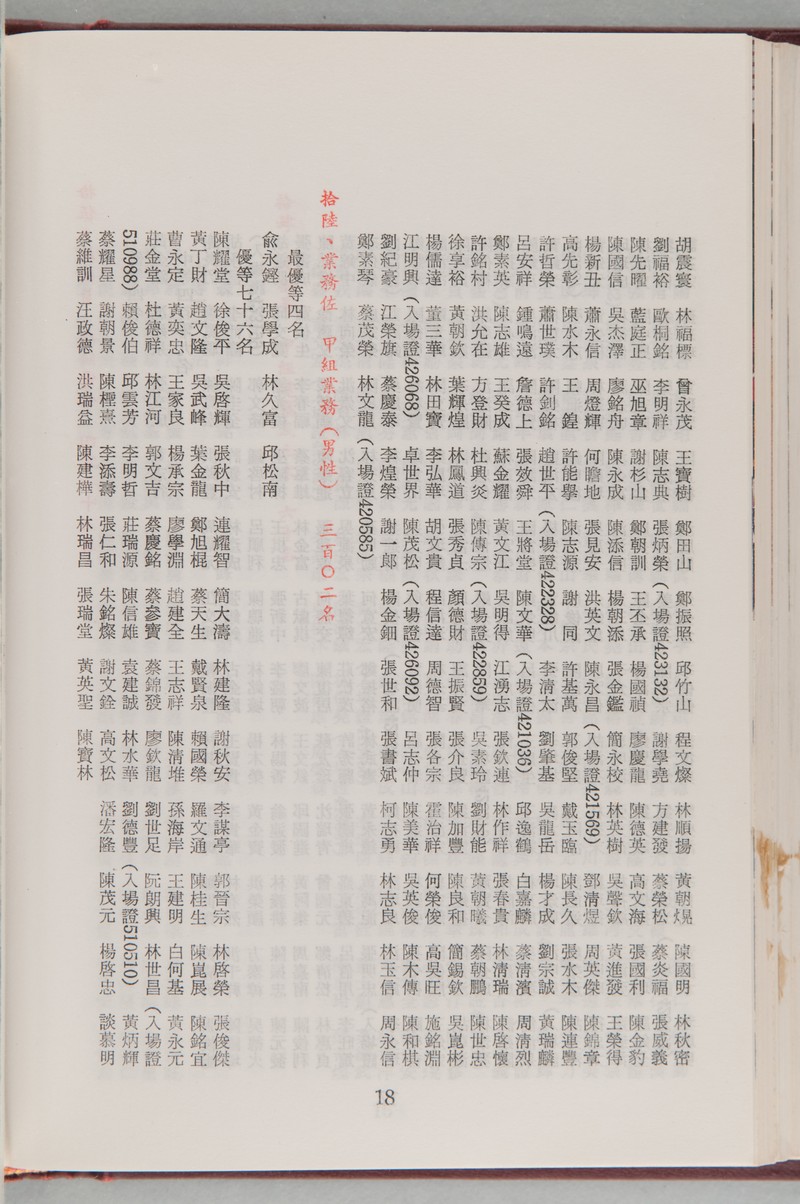 胡震寰 林福標 曾永茂 王寶樹 鄭田山 鄭振照 邱竹山 程文燦 林順揚 黃朝焜 陳國明 林秋密
劉福裕 歐桐銘 李明祥 陳志典 張炳榮(入場證423132) 謝學堯 方建發 蔡榮松 蔡炎福 張威義
陳先曜 藍庭正 巫旭章 謝杉山 鄭朝訓 王丕承 楊國禎 廖慶龍 陳德英 高文海 張國利 陳金豹
陳國信 吳杰澤 廖銘舟 陳永成 陳添信 楊朝添 張金鑑 簡永校 林英樹 吳聲欽 黃進發 王榮得
楊新丑 蕭永信 周燈輝 何瞻地 張見安 洪英文 陳永昌(入場證421569) 鄧清煜 周英傑 陳錦章
高先彰 陳水木 王 鍠 許能擧 陳志源 謝 同 許基萬 郭俊堅 戴玉臨 陳長久 張水木 陳連豐
許哲榮 蕭世璞 許釗銘 趙世平(入場證422328) 李清太 劉肇基 吳龍岳 楊才成 劉宗誠 黃瑞麟
呂安祥 鍾鳴遠 詹德上 張效舜 王將堂 陳文華(入場證421036) 邱逸鶴 白嘉麟 蔡清濱 周清烈
鄭素英 陳志雄 王癸成 蘇金耀 黃文江 吳明得 江湧志 張欽連 林作祥 張春貴 林清瑞 陳啓懷
許銘村 洪允在 方登財 杜興炎 陳傳宗(入場證422859) 吳素玲 劉財能 黃朝曦 蔡朝鵬 陳世忠
徐享裕 黃朝欽 葉輝煌 林鳳道 張秀貞 顏德財 王振賢 張介良 陳加豐 陳良和 簡錫欽 吳崑彬
楊儒達 董三華 林田寶 李弘華 胡文貴 程信達 周德智 張各宗 霍治祥 何榮俊 高吳旺 施銘淵
江明興(入場證426068) 卓世界 陳茂松(入場證426092) 呂志仲 陳美華 吳英俊 陳木傳 陳和棋
劉紀豪 江榮旗 蔡慶泰 李煌榮 謝一郎 楊金鈿 張世和 張書斌 柯志勇 林志良 林玉信 周永信
鄭素琴 蔡茂榮 林文龍(入場證420585)
拾陸、業務佐 甲組業務(男性) 三百〇二名
最優等四名
兪永鏗 張學成 林久富 邱松南
優等七十六名
陳耀堂 徐俊平 吳啓輝 張秋中 連耀智 簡大濤 林建隆 謝秋安 李謀亭 郭晉宗 林啓榮 張俊傑
黃丁財 趙文隆 吳武峰 葉金龍 鄭旭棍 蔡天生 戴賢泉 賴國榮 羅文通 陳桂生 陳崑展 陳銘宜
曹永定 黃奕忠 王家良 楊承宗 廖學淵 趙建全 王志祥 陳清堆 孫海岸 王建明 白何基 黃永元
莊金堂 杜德祥 林江河 郭文吉 蔡慶銘 蔡參寶 蔡錦發 廖欽龍 劉世足 阮朗興 林世昌(入場證
510988) 賴俊伯 邱雲芳 李明哲 莊瑞源 陳信雄 袁建誠 林水華 劉德豐(入場證510510) 黃炳輝
蔡耀星 謝朝景 陳樫熹 李添壽 張仁和 朱銘燦 謝文銓 高文松 潘宏隆 陳茂元 楊啓忠 談慕明
蔡維訓 汪政德 洪瑞益 陳建樺 林瑞昌 張瑞堂 黃英聖 陳寶林
18